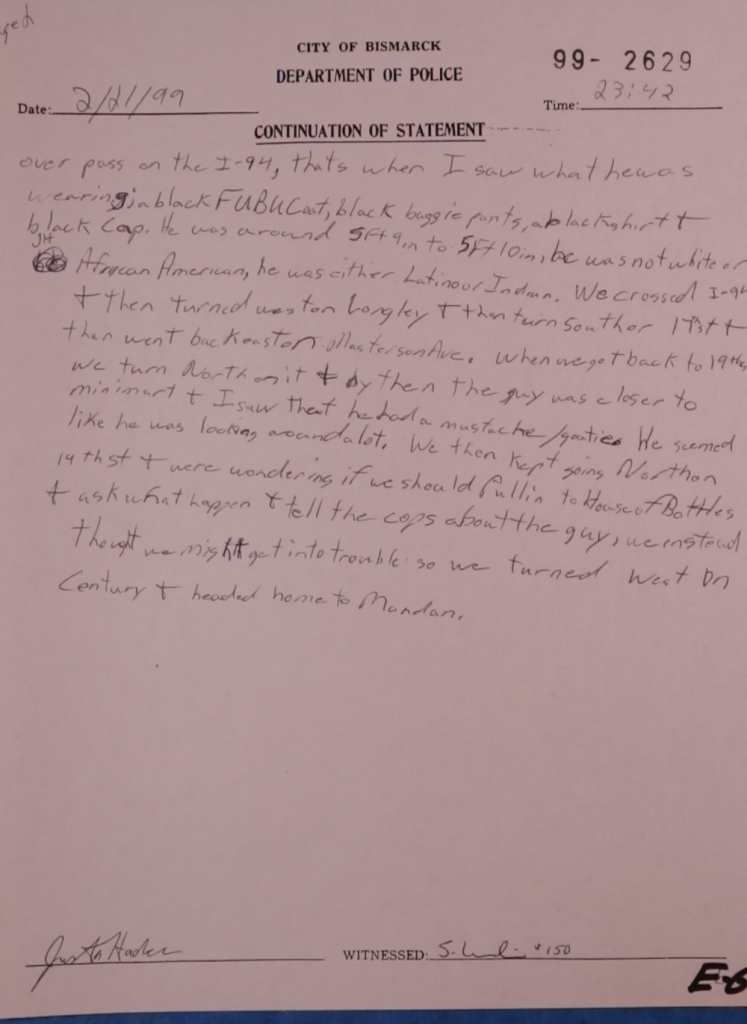 ged
CITY OF BISMARCK
DEPARTMENT OF POLICE
99- 2629
Date: 2/21/99
Time: 23:42
CONTINUATION OF STATEMENT
over pass on the I-94, thats when I saw what he was
wearing in a black FUBU Coat, black baggie pants, a black shirt +
black Cap. He was around 5ft 9in to 5ft 10in, he was not white or
JH
African American, he was either Latino our Indian. We crossed I-94
+ then turned west on Longley + then turn South or 17st +
then went back east on Masterson Ave. When we got back to 19th
we turn North on it + by then the guy was closer to
minimart + I saw that he had a mustache/goatie. He seemed
like he was looking around alot. We then kept going North on
19th st + were wondering if we should pull in to House of Bottles
+ ask what happen + tell the cops about the guy, we instead
thought we might get into trouble so we turned West on
Century + headed home to Mandan.
WITNESSED: #150
E-6